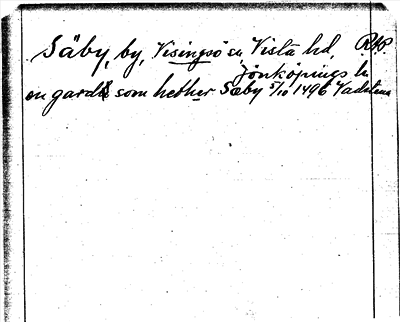 Säby, by, Visingsö sn, Vista hd, RAP
Jönköpings ln
en gard som hether Sæby 5/10 1496 Vadstena